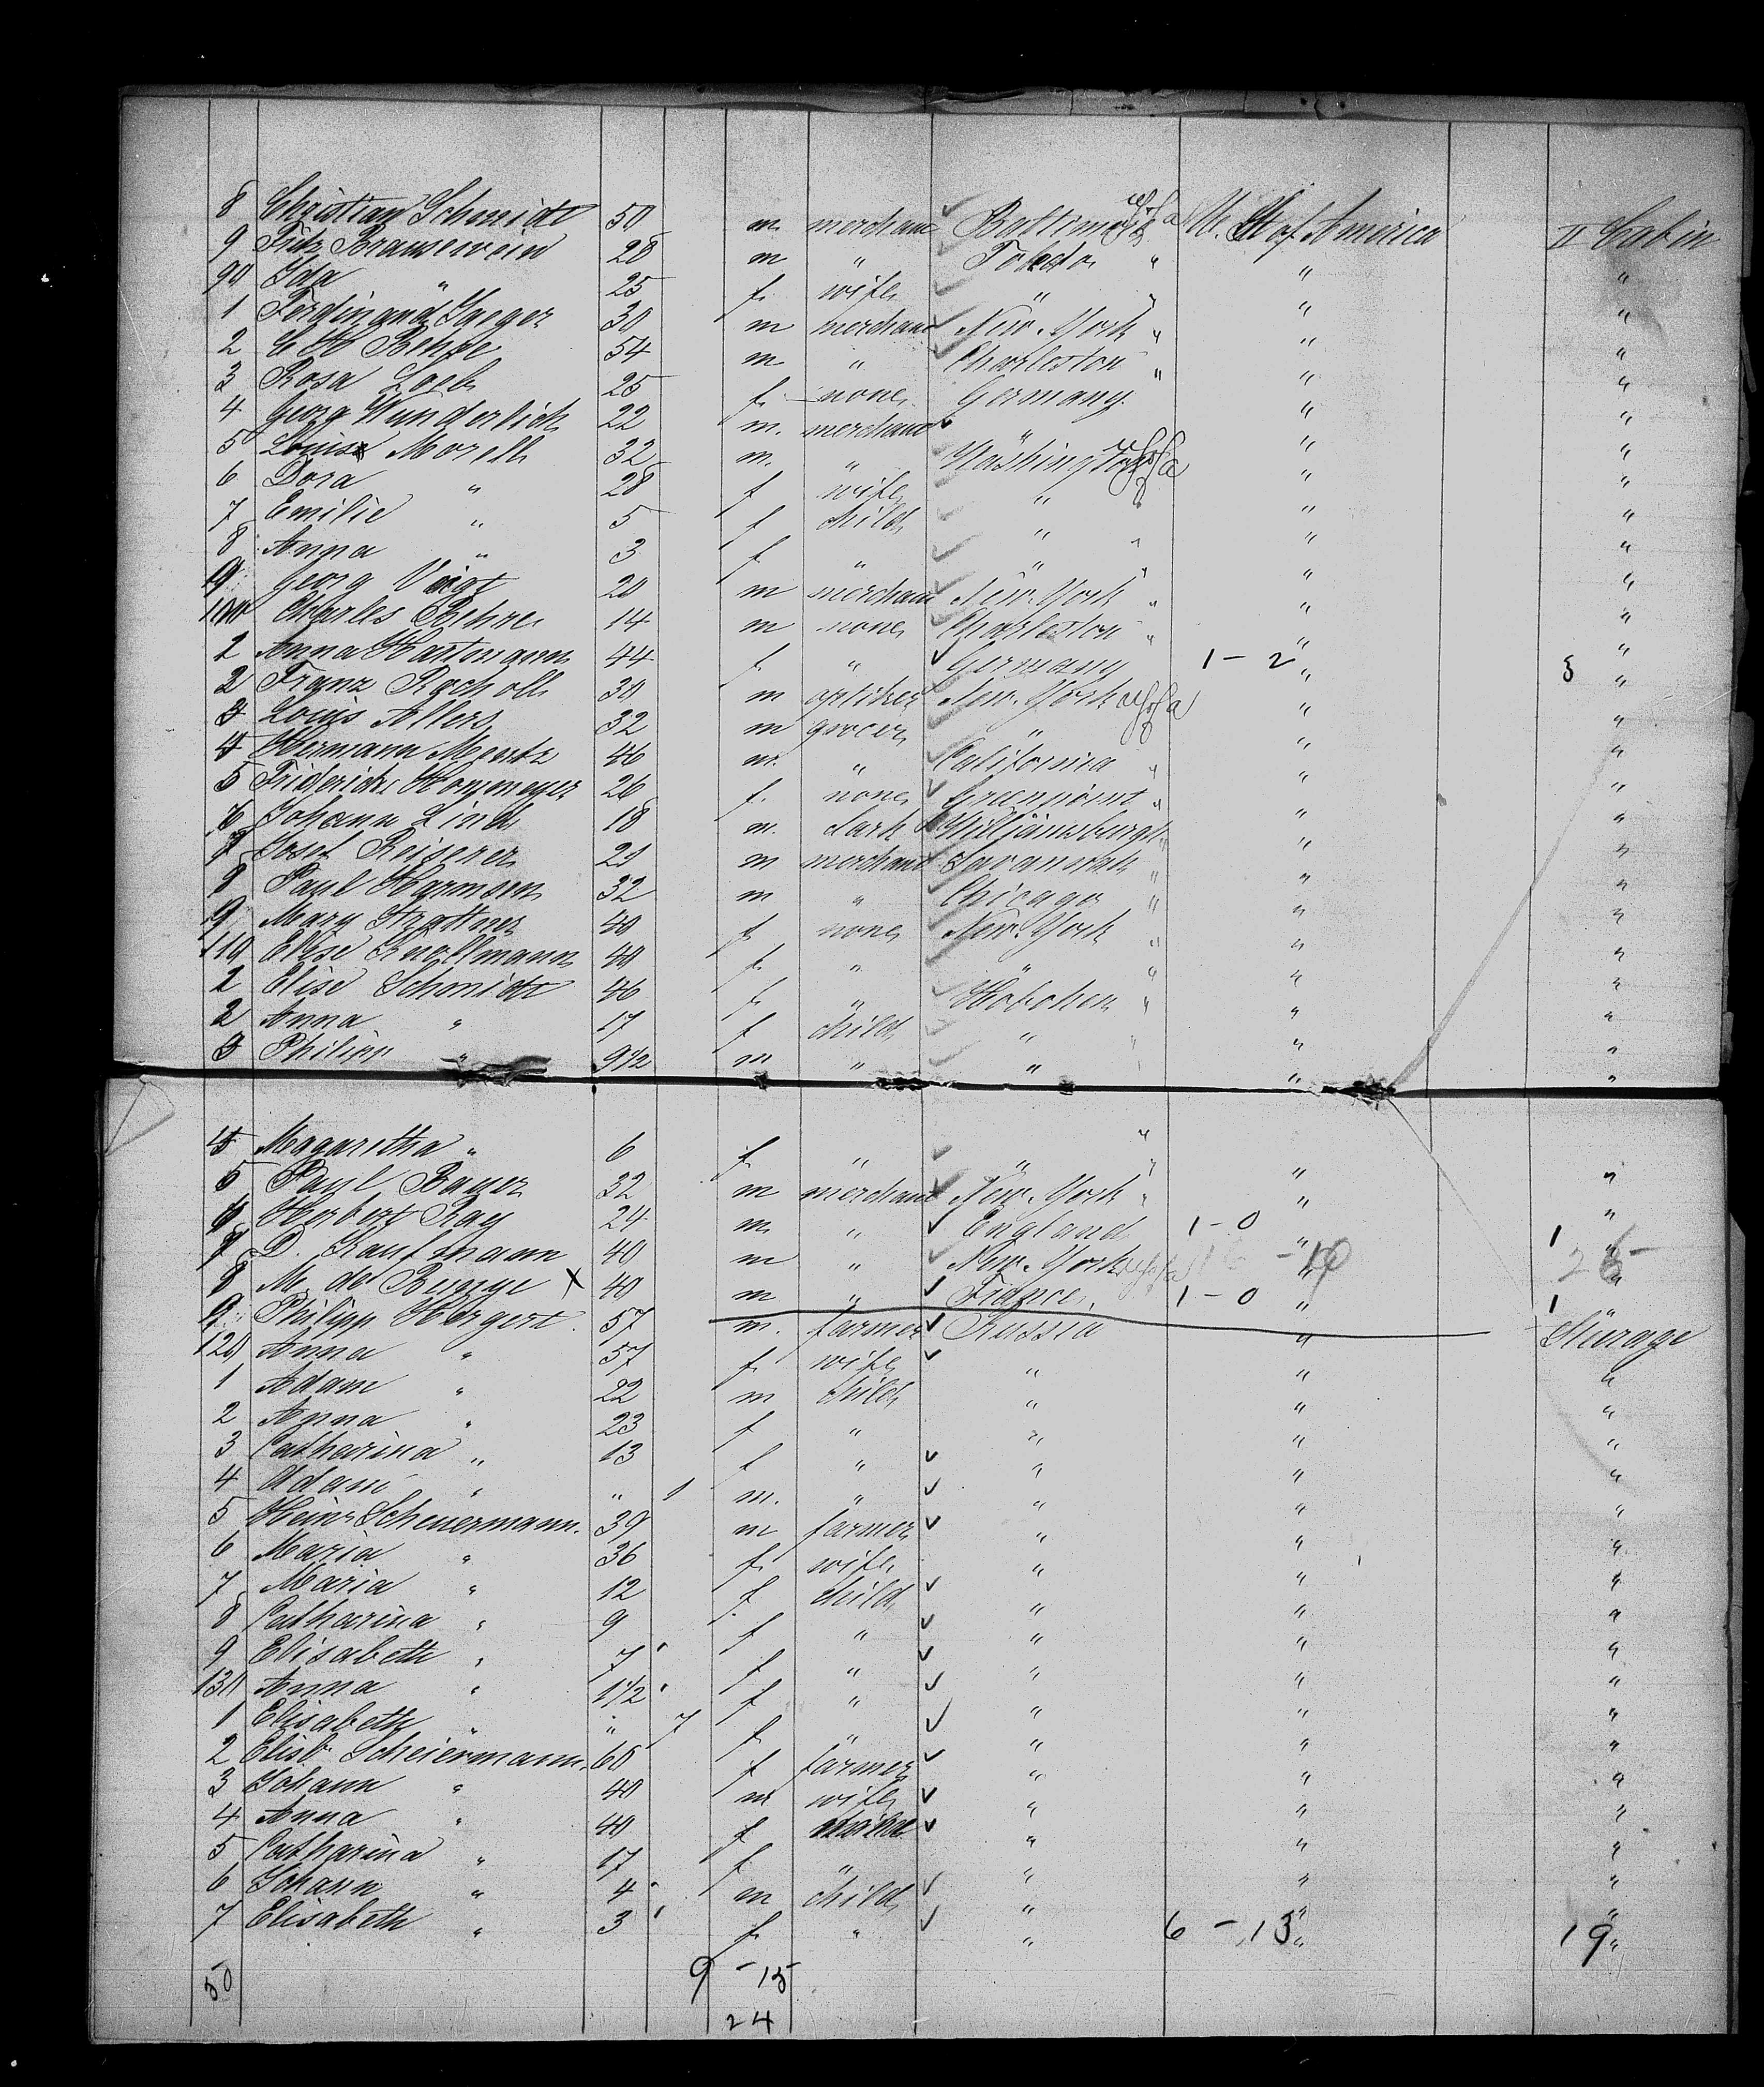 8 Christian Schmidt 50 m merchant Baltimore U. St. of America II Cabin
9 Fritz Braunewein 28 m " Toledo " " "
90 Ida " 25 f. wife " " " "
1 Ferdinand Jaeger 30 m merchant New-York " " "
2 C H Behre 54 m " Charleston " " "
3 Rosa Loeb 25 f. none Germany. " "
4 Georg Wunderlich 22 m. merchant " " "
5 Louis Morell 32 m. " Washington " "
6 Dora " 28 f wife " " "
7 Emilie " 5 f child " " " "
8 Anna " 3 f " " " " "
9 Georg Voigt 20 m merchant New-York " " "
100 Charles Behre 14 m none Charleston " " "
1 Anna Hartmann 44 f. " Germany 1 - 2 " 3 "
2 Franz Racholl 30 m optiker New-York " "
3 Louis Allers 32 m grocer " " "
4 Hermann Mentz 46 m. " California " " "
5 Friedericke 26 f. none Greenpoint " " "
6 Johann Lind 18 m. Williamsburgh " " "
7 Josef Reiserer 21 m merchant Savannah " " "
8 Paul Harmsen 32 m " Chicago " " "
9 Mary 40 f none New-York " " "
110 Elise Knollmann 40 f. " " " " "
1 Elise Schmidt 46 f. " Hoboken " " "
2 Anna " 17 f child " " " "
3 Philipp " 9 1/2 m " " " " "
4 Magaretha " 6 f. " " " " "
5 Paul Bauer 32 m merchant New-York " " "
6 Herbert Ray 24 m " England 1 - 0 " 1 "
7 D. Kaufmann 40 m " New-York - 10 " 26 "
8 M. de Bunge x 40 m " France. 1 - 0 " 1 "
9 Philipp Hergert 57 m. farmer Russia " Stürage
120 Anna " 57 f. wife " " "
1 Adam " 22 m child " " "
2 Anna " 23 f " " " "
3 Catharina " 13 f " " " "
4 Adam " " 1 m. " " " "
5 Heinr Scheuermann. 39 m farmer " " "
6 Maria " 36 f. wife " " "
7 Maria " 12 f child " " "
8 Catharina " 9 f " " " "
9 Elisabeth " 7 f " " " "
130 Anna " 1 1/2 f " " " "
1 Elisabeth " " 7 f. " " " "
2 Elisb Scheiermann. 60 f farmer " " "
3 Johann " 40 m wife " " "
4 Anna " 40 f " " "
5 Catharina " 17 f " " " "
6 Johann " 4 m child " " "
7 Elisabeth " 3 f. " " 6 - 13 " 19 "
50 9 - 15
24